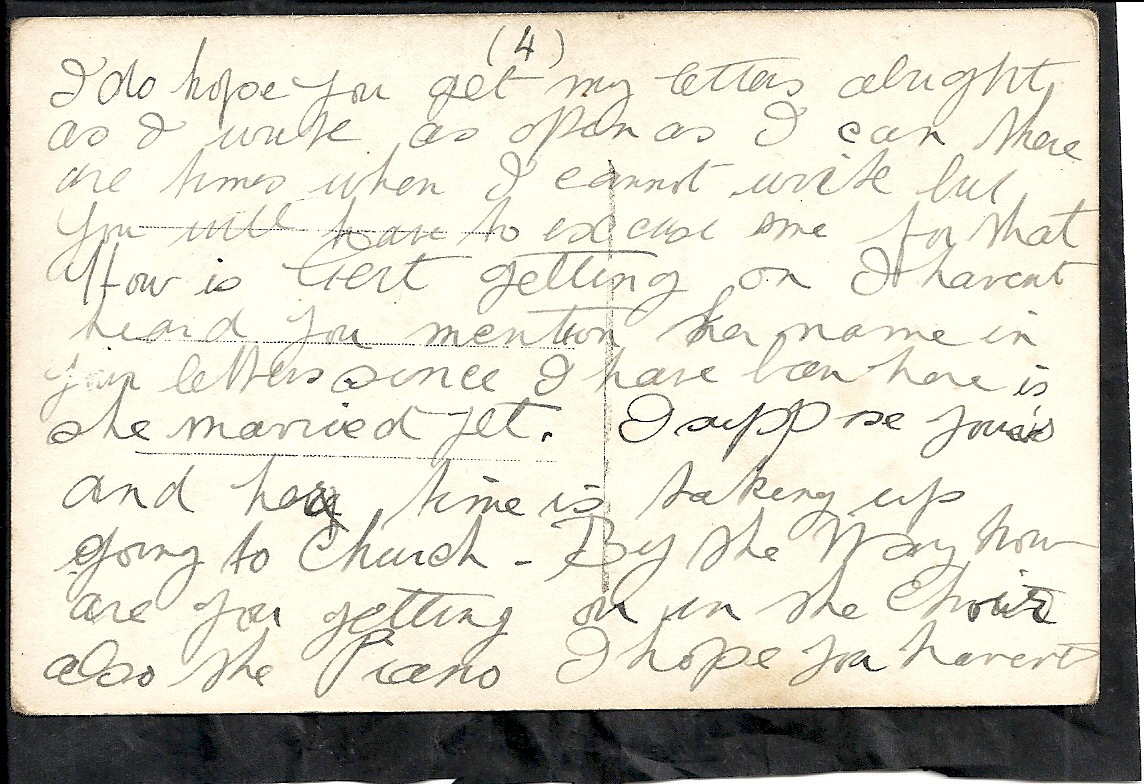 (4)
I do hope you get my letters alright
as I write as often as I can there
are times when I cannot write but
you will have to excuse me for that
How is Gert getting on I havent
heard you mention her name in
your letters since I have been here is
she married yet. I suppose your's
and her time is taking up
going to Church - By the Way how
are you getting on in the Choir
also the Piano I hope you havent